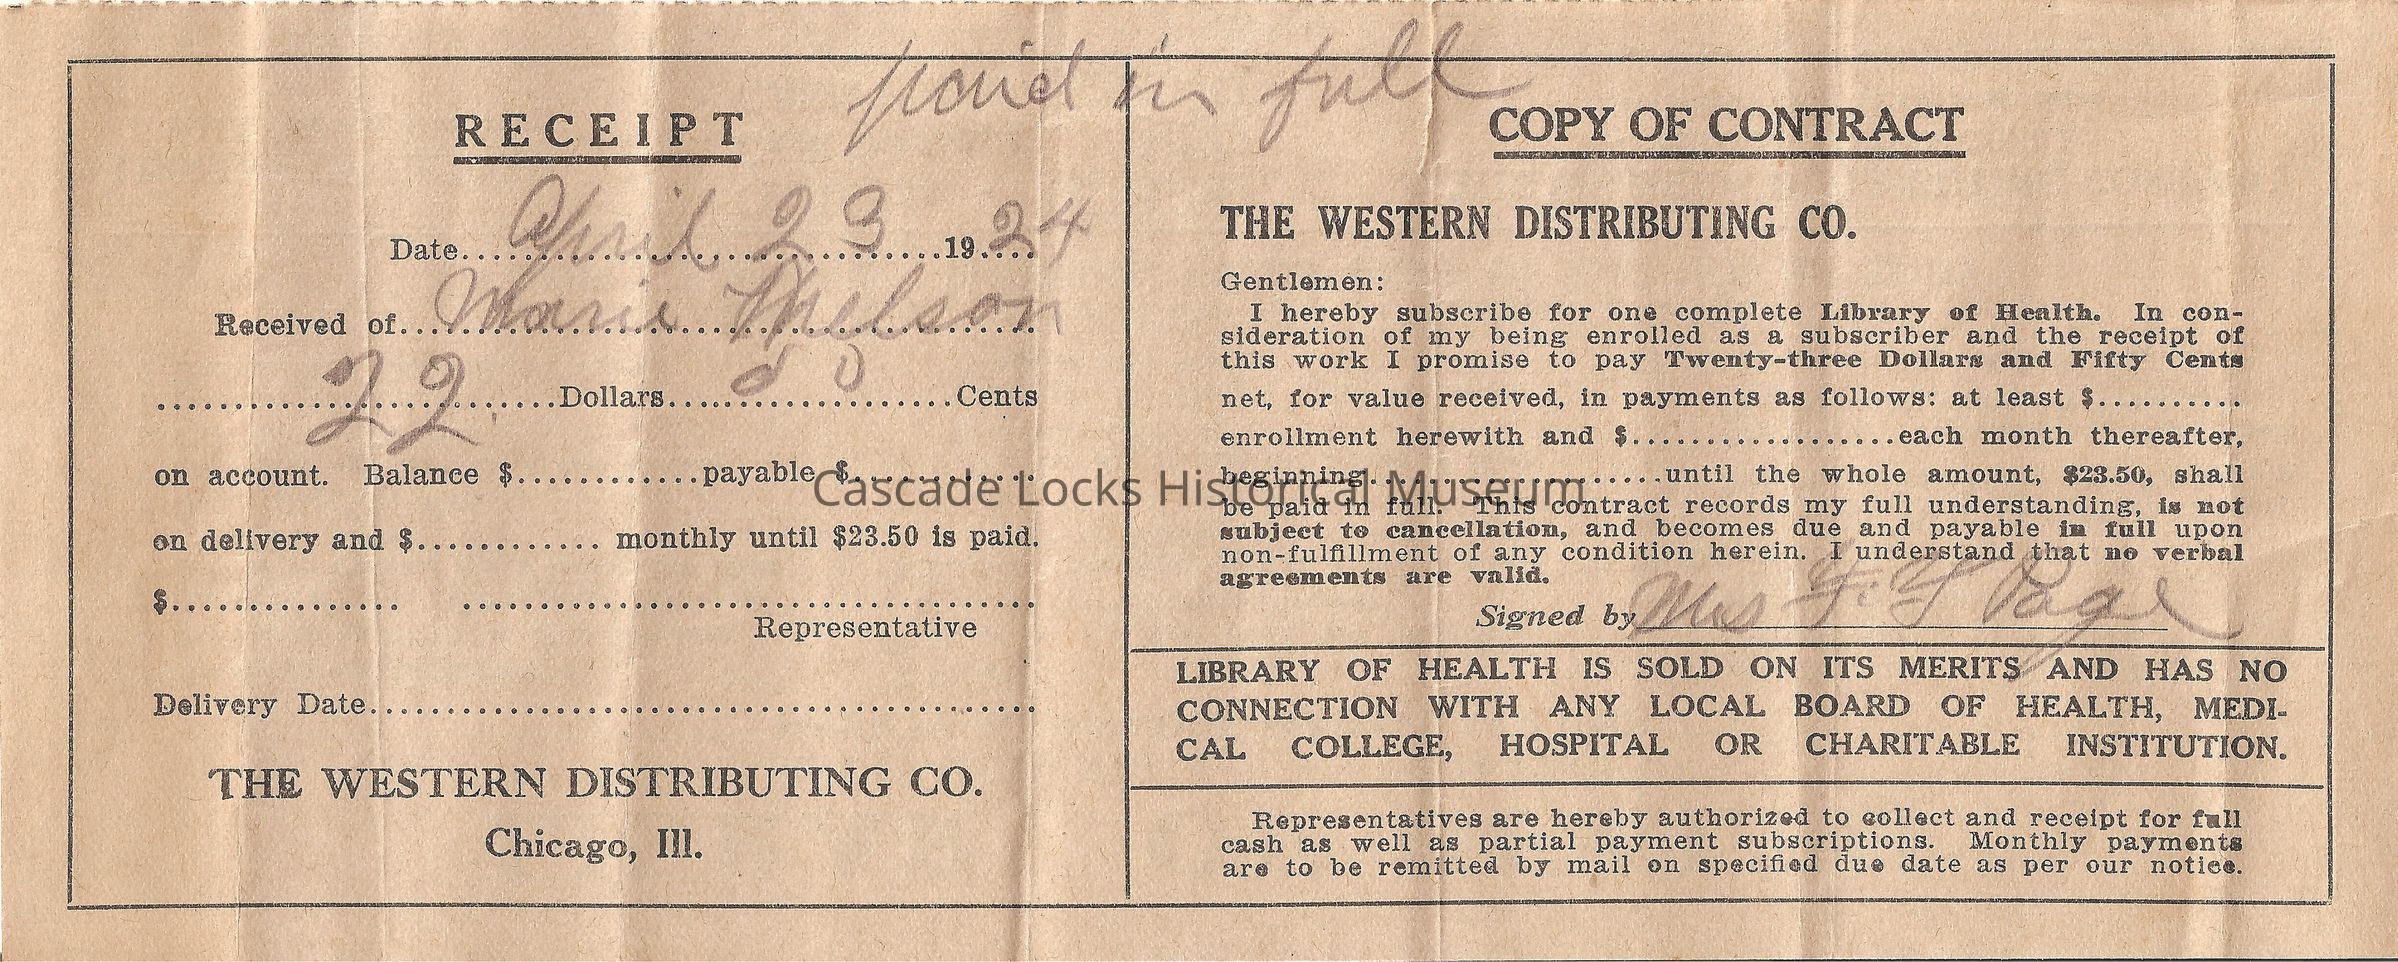 paid in full
RECEIPT
Date April 23 1924
Received of Marie Nelson
22 Dollars 50 Cents
on account. Balance $............payable $............
on delivery and $............ monthly until $23.50 is paid.
$............... ...............................................
Representative
Delivery Date...............................................
THE WESTERN DISTRIBUTING CO.
Chicago, Ill.
COPY OF CONTRACT
THE WESTERN DISTRIBUTING CO.
Gentlemen:
I hereby subscribe for one complete Library of Health. In con-
sideration of my being enrolled as a subscriber and the receipt of
this work I promise to pay Twenty-three Dollars and Fifty Cents
net, for value received, in payments as follows: at least $..........
enrollment herewith and $..................each month thereafter,
beginning....................until the whole amount, $23.50, shall
be paid in full. This contract records my full understanding, is not
subject to cancellation, and becomes due and payable in full upon
non-fulfillment of any condition herein. I understand that no verbal
agreements are valid.
Signed by Mrs F. Y Page
LIBRARY OF HEALTH IS SOLD ON ITS MERITS AND HAS NO
CONNECTION WITH ANY LOCAL BOARD OF HEALTH, MEDI-
CAL COLLEGE, HOSPITAL OR CHARITABLE INSTITUTION.
Representatives are hereby authorized to collect and receipt for full
cash as well as partial payment subscriptions. Monthly payments
are to be remitted by mail on specified due date as per our notice.
Cascade Locks Historical Museum